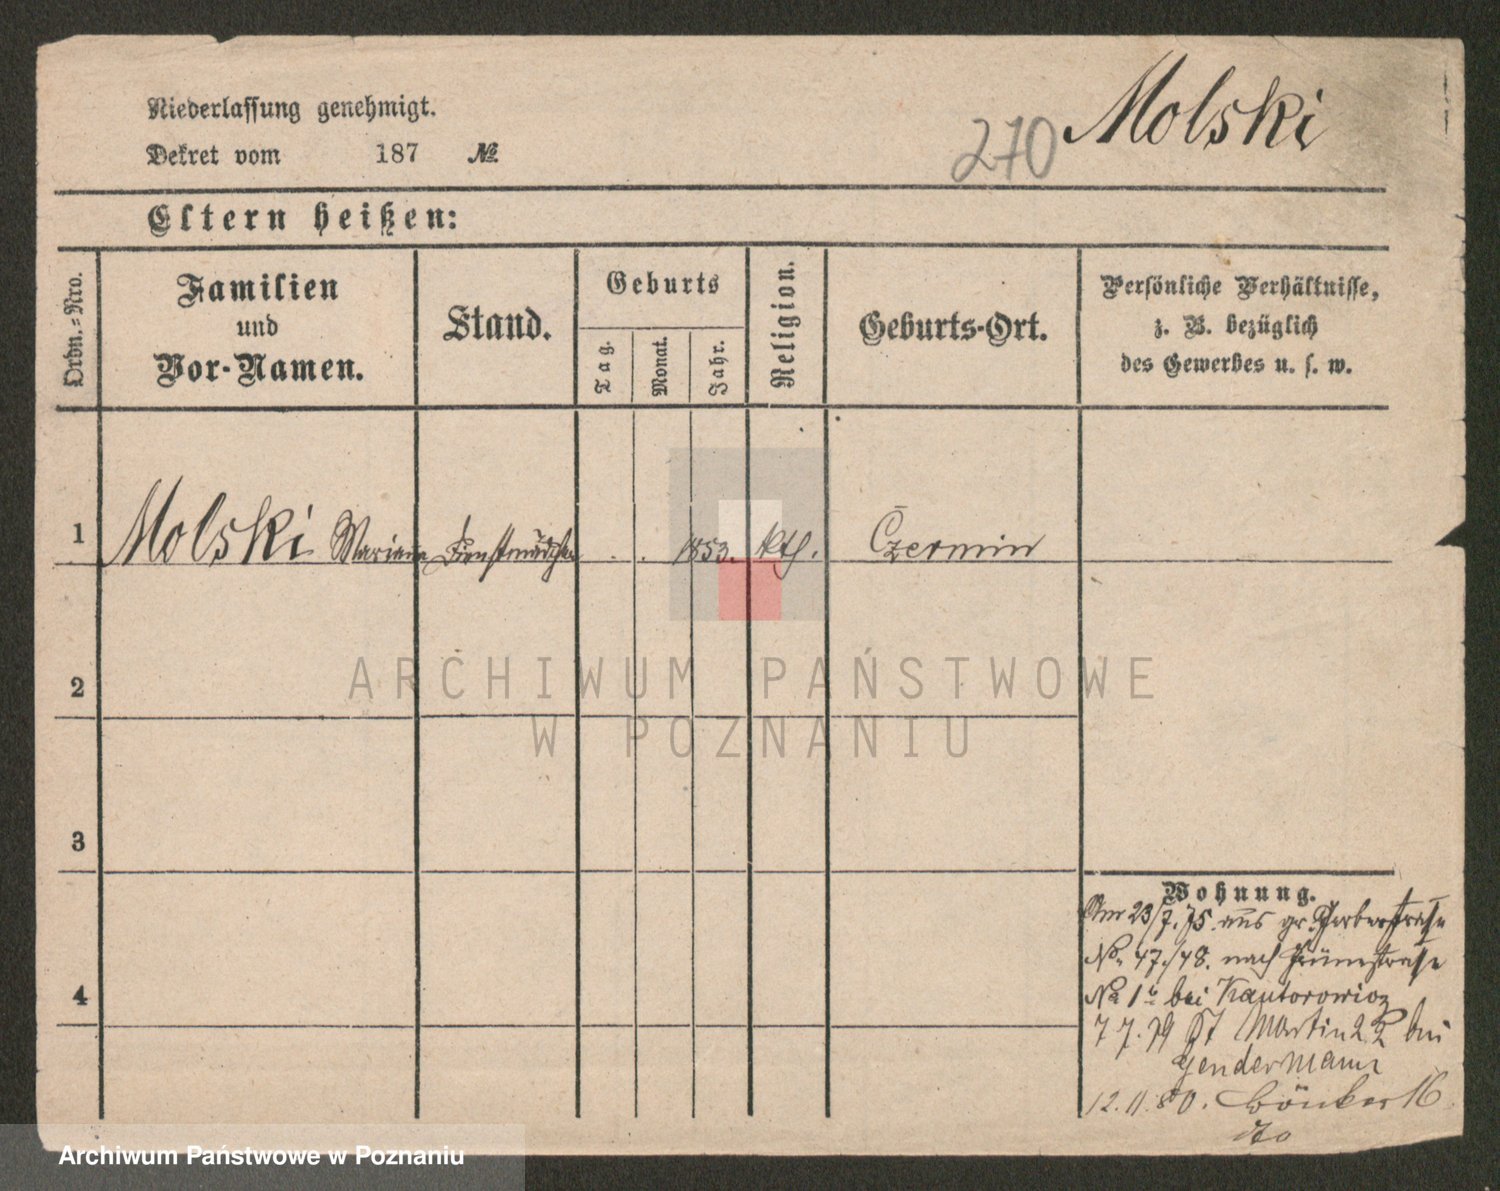 Niederlassung genehmigt.
Dekret vom 187 №
270 Molski
Eltern heißen:
Ordn.-Nro.
Familien
und
Vor-Namen.
Stand.
Geburts
Tag.
Monat.
Jahr.
Religion.
Geburts-Ort.
Persönliche Verhältnisse,
z. B. bezüglich
des Gewerbes u. s. w.
1 Molski Mariana Dienstmädchen . . 1853. kth. Czermin
2
3
4
Wohnung.
Am 23/7. 75. aus gr. Gerberstraße
No 47./48. nach Grünestraße
No 1 bei Kantorowicz
7 7. 79 St Martin 22 bei
Gendermann
12. 11. 80. 16
do
ARCHIWUM PAŃSTWOWE
W POZNANIU
Archiwum Państwowe w Poznaniu